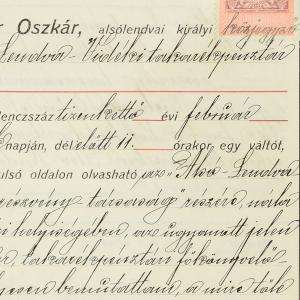 r Oszkár, alsólendvai királyi közjegyző
Lendva-Vidéki takarékpénztár
lenczszáz tizenkettő évi február
napján, délelőtt 11 órakor egy váltót,
ulsó oldalon olvasható az "Alsó-Lendva
részvény társaság" részére, nála
i helyiségében, az ugyanott jelen
takarékpénztári főkönyvelő
bemutattam, a mire tőle